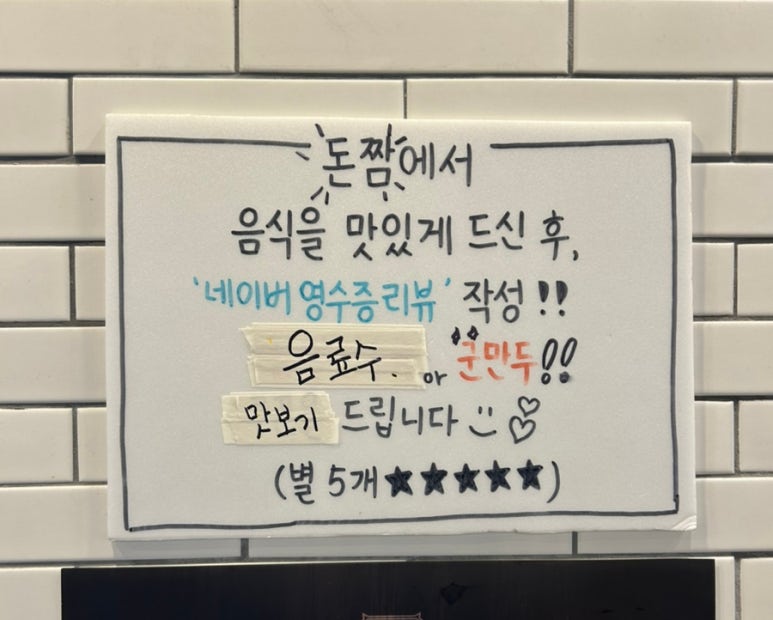 돈짬에서
음식을 맛있게 드신 후,
'네이버 영수증 리뷰' 작성!!
음료수. or 군만두!!
맛보기 드립니다
(별 5개★★★★★)